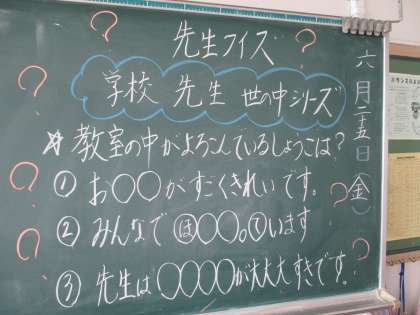 先生クイズ
学校 先生 世の中シリーズ
☆教室の中がよろこんでいるしょうこは?
① お○○がすごくきれいです。
② みんなで ㋭○○。㋢います
③ 先生は○○○○が大大大すきです。
六月二十五日(金)